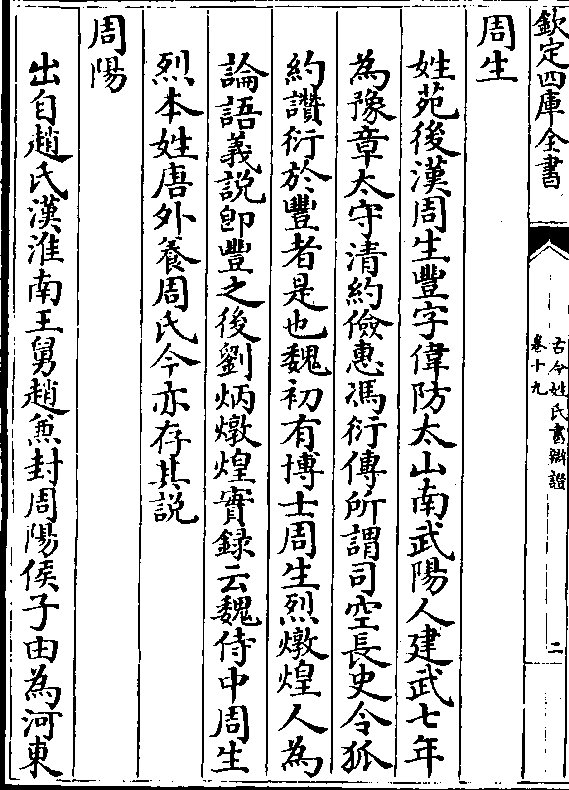 欽定四庫全書
古今姓氏書辯證
卷十九
二
周生
姓苑後漢周生豐字偉防太山南武陽人建武七年
為豫章太守清約儉惠馮衍傳所謂司空長史令狐
約讚衍於豐者是也魏初有博士周生烈燉煌人為
論語義説卽豐之後劉炳燉煌實録云魏侍中周生
烈本姓唐外養周氏今亦存其説
周陽
出自趙氏漢淮南王舅趙兼封周陽侯子由為河東